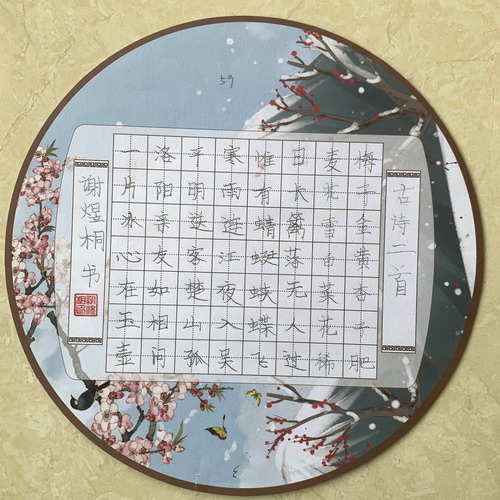 59
古诗二首
梅子金黄杏子肥
麦花雪白菜花稀
日长篱落无人过
惟有蜻蜓蛱蝶飞
寒雨连江夜入吴
平明送客楚山孤
洛阳亲友如相问
一片冰心在玉壶
谢煜桐 书